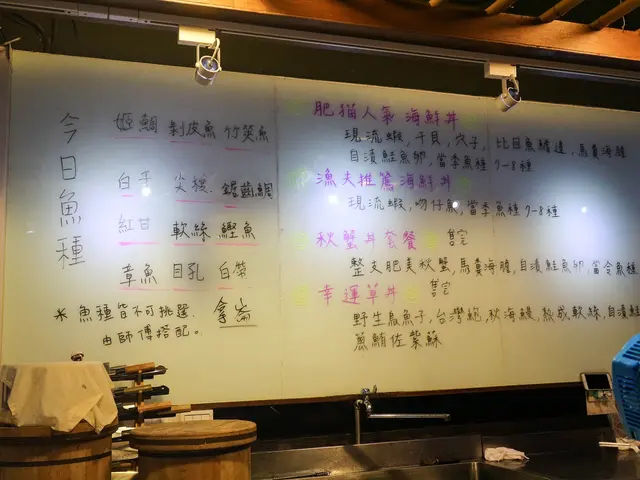 今日魚種
姬鯛 剝皮魚 竹筴魚
白干 尖梭
紅甘 軟絲 鰹魚
章魚 目孔 白帶
＊魚種皆不可挑選，
由師傅搭配。
肥猫人氣 海鮮丼
現流蝦，干貝，穴子，比目魚鰭邊，馬糞海膽
自漬鮭魚卵，當季魚種 7-8種
漁夫推薦海鮮丼
現流蝦，吻仔魚，當季魚種 7-8種
秋蟹丼套餐 售完
整支肥美秋蟹，馬糞海膽，自漬鮭魚卵，當令魚種
幸運草丼 售完
野生烏魚子，台灣鮑，秋海鰻，熟成軟絲，自漬鮭
蔥鮪佐紫蘇